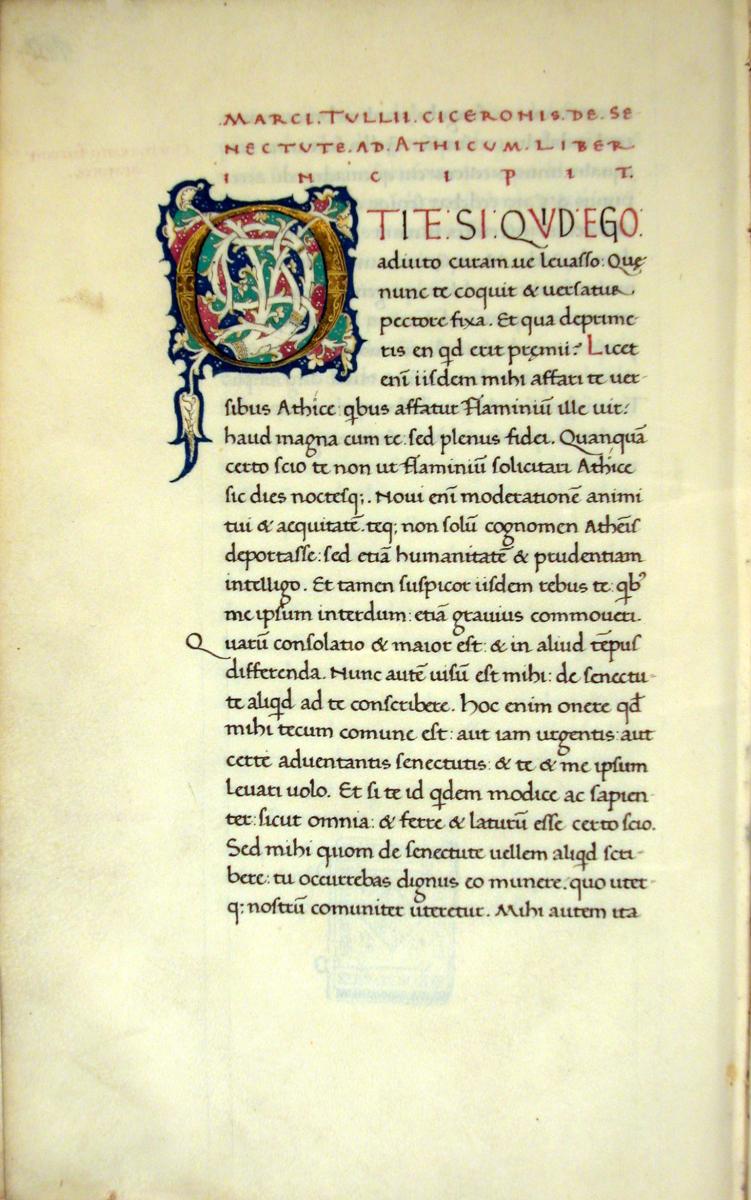 .MARCI.TULLII.CICERONIS.DE.SE
NECTUTE.AD.ATHICUM.LIBER
INCIPIT.
OTITE.SI.QVDEGO.
adiuto curam ue leuasso: Quę
nunc te coquit & uersatur
pectore fixa. Et qua deprime
ris en qd erit pręmii? Licet
eni̅ iisdem mihi affari te uer-
sibus Athice qbus affatur flaminiu̅ ille uir:
haud magna cum re: sed plenus fidei. Quanqua̅
certo scio te non ut flaminiu̅ solicitari Athice
sic dies noctesq;. Noui eni̅ moderatione̅ animi
tui & aequitate̅. teq; non solu̅ cognomen Athe̅is
deportasse: sed etia̅ humanitate̅ & prudentiam
intelligo. Et tamen suspicor iisdem rebus te: qb9
me ipsum interdum: etia̅ grauius commoueri.
Quaru̅ consolatio & maior est: & in aliud te̅pus
differenda. Nunc aute̅ uisu̅ est mihi: de senectu-
te aliqd ad te conscribere. Hoc enim onere qd
mihi tecum comune est: aut iam urgentis: aut
certe aduentantis senectutis: & te & me ipsum
leuari uolo. Et si te id qdem modice ac sapien-
ter: sicut omnia: & ferre & laturu̅ esse certo scio.
Sed mihi quom de senectute uellem aliqd scri-
bere: tu occurrebas dignus eo munere. quo uter-
q; nostru̅ comuniter uteretur. Mihi autem ita